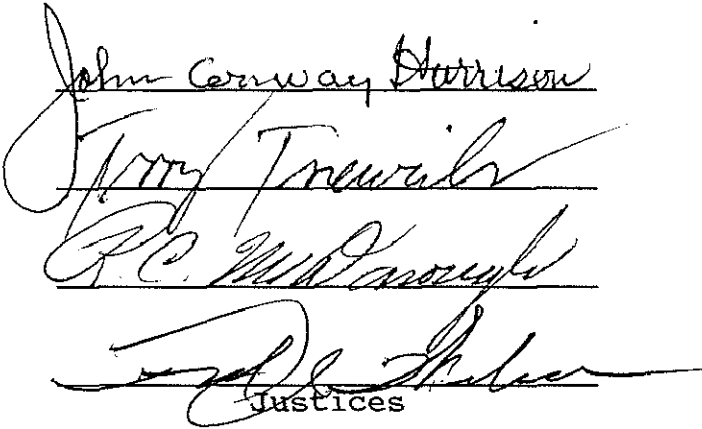 John Conway Harrison
Terry Trieweiler
R. C. McDonough
Justices